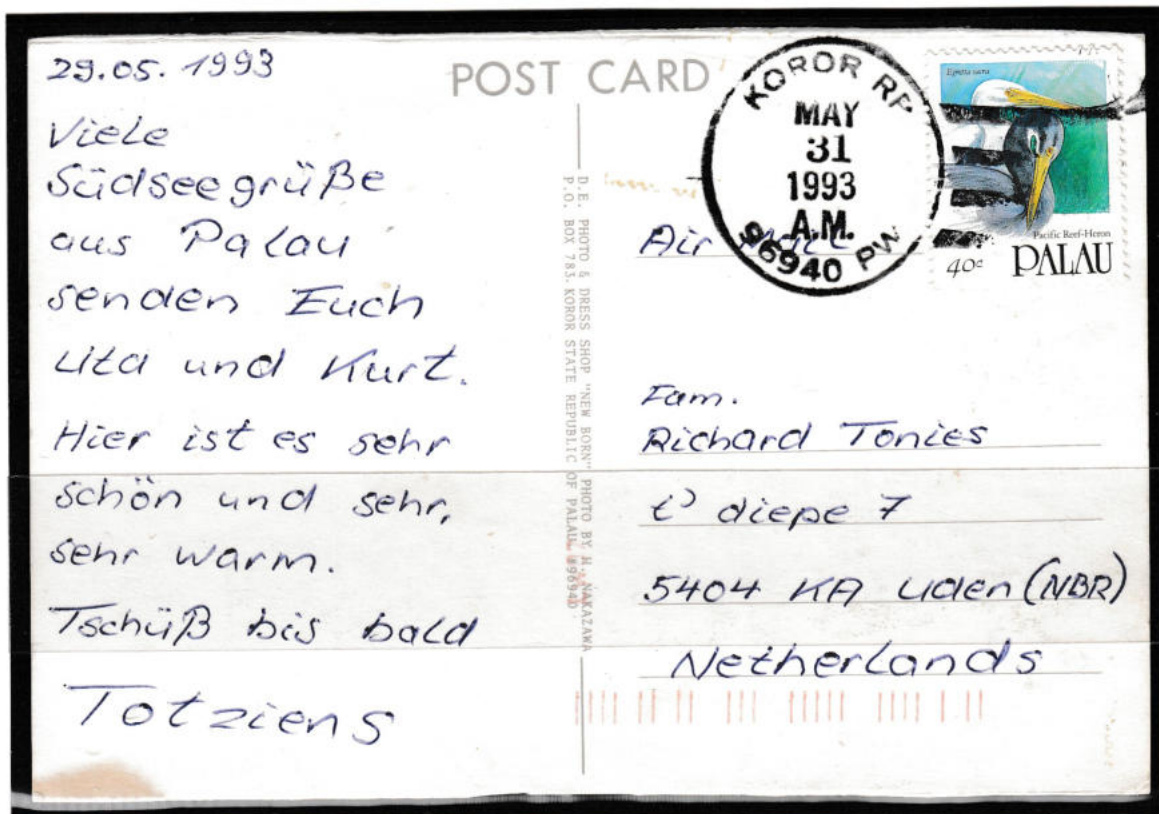 29.05.1993
Viele
Südseegrüße
aus Palau
senden Euch
Lita und Kurt.
Hier ist es sehr
schön und sehr,
sehr warm.
Tschüß bis bald
Totziens
POST CARD
D.E. PHOTO & DRESS SHOP "NEW BORN" PHOTO BY H. NAKAZAWA
P.O. BOX 783. KOROR STATE REPUBLIC OF PALAU. #96940
KOROR RP
MAY
31
1993
A.M.
96940 PW
Egretta sacra
Pacific Reef-Heron
40c PALAU
Air Mail
Fam.
Richard Tonies
t' diepe 7
5404 KA Uden (NBR)
Netherlands